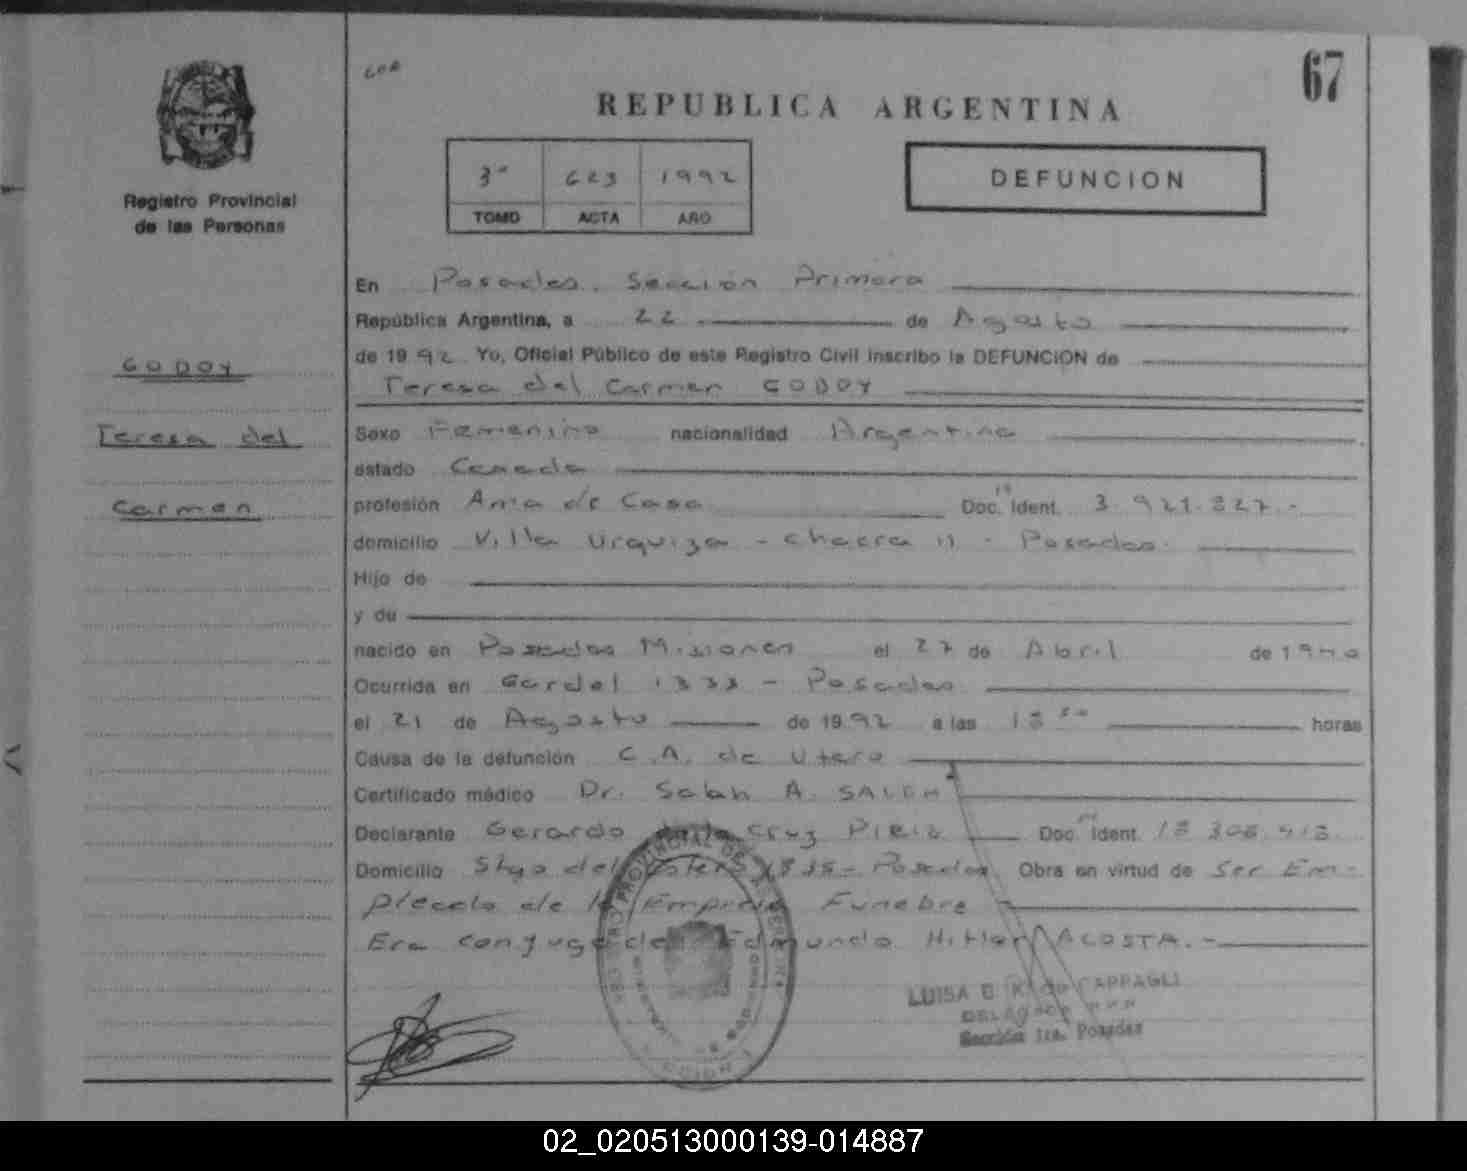 67
REPUBLICA ARGENTINA
3º 623 1992
TOMO ACTA AÑO
DEFUNCION
Registro Provincial
de las Personas
GODOY
Teresa del
Carmen
En Posadas. Sección Primera
República Argentina, a 22 de Agosto
de 1992 Yo, Oficial Público de este Registro Civil inscribo la DEFUNCION de
Teresa del Carmen GODOY
Sexo Femenino nacionalidad Argentina
estado Casada
profesión Ama de Casa Doc. Ident. 3.921.227.-
domicilio Villa Urquiza - chacra 11 - Posadas.
Hijo de
y de
nacido en Posadas Misiones el 27 de Abril de 1940
Ocurrida en Gardel 1333 - Posadas
el 21 de Agosto de 1992 a las 18 horas
Causa de la defunción C.A. de Utero
Certificado médico Dr. Salah A. SALEH
Declarante Gerardo de la Cruz Doc. Ident. 18.306.413.
Domicilio Stgo del Estero 1835 - Posadas. Obra en virtud de Ser Em-
pleado de la Empresa Funebre
Era conyuge de Edmundo Hitler ACOSTA.-
LUISA E. K. de CAPPAGLI
Sección 1ra. Posadas
02_020513000139-014887